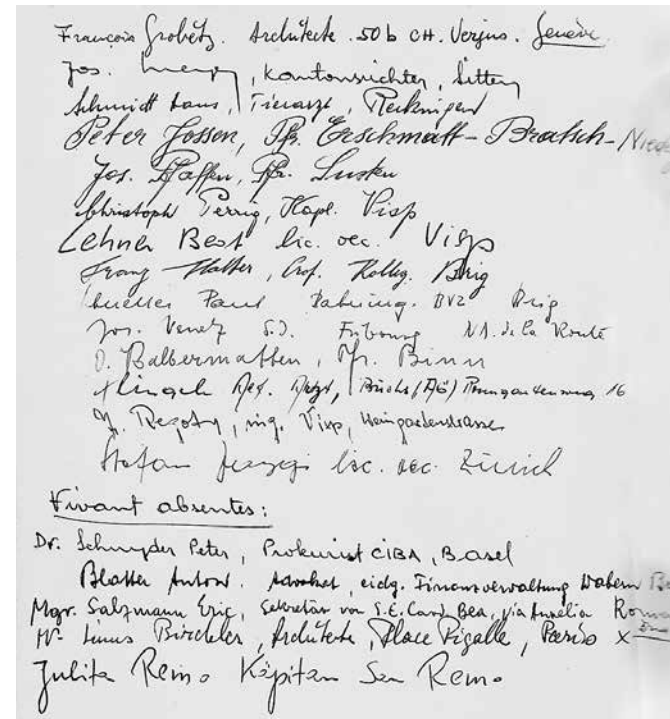 François Grobéty. Architecte. 50b CH. Verjus. Genève
Jos. , Kantonsrichter, Sitten
Schmidt Hans, Tierarzt, Reckingen
Peter Jossen, Pfr. Erschmatt-Bratsch-
Jos. Pfaffen, Pfr. Susten
Christoph Perrig, Kapl. Visp
Lehner Beat lic. oec. Visp
Franz , Prof. Kolleg. Brig
Paul BVZ Brig
Jos. Venetz S.J. Fribourg de la Route
O. Balbermatten, Pfr. Binn
Buchs (AG) 16
Regoty, ing. Visp, Weingartenstrasse
Stefan lic. oec. Zürich
Vivant absentes:
Dr. Schnyder Peter, Prokurist CIBA, Basel
Blatter Anton. Advokat, eidg. Finanzverwaltung Wabern
Mgr. Salzmann Eric, Sekretär von S.E. Card. Bea, via Aurelia
Linus Bircheler, Architekte, Place Pigalle, Paris x
Julita Remo Kapitan San Remo